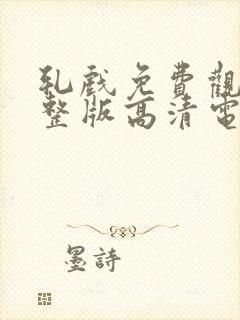 乳戲免費觀
整版高清電
墨詩